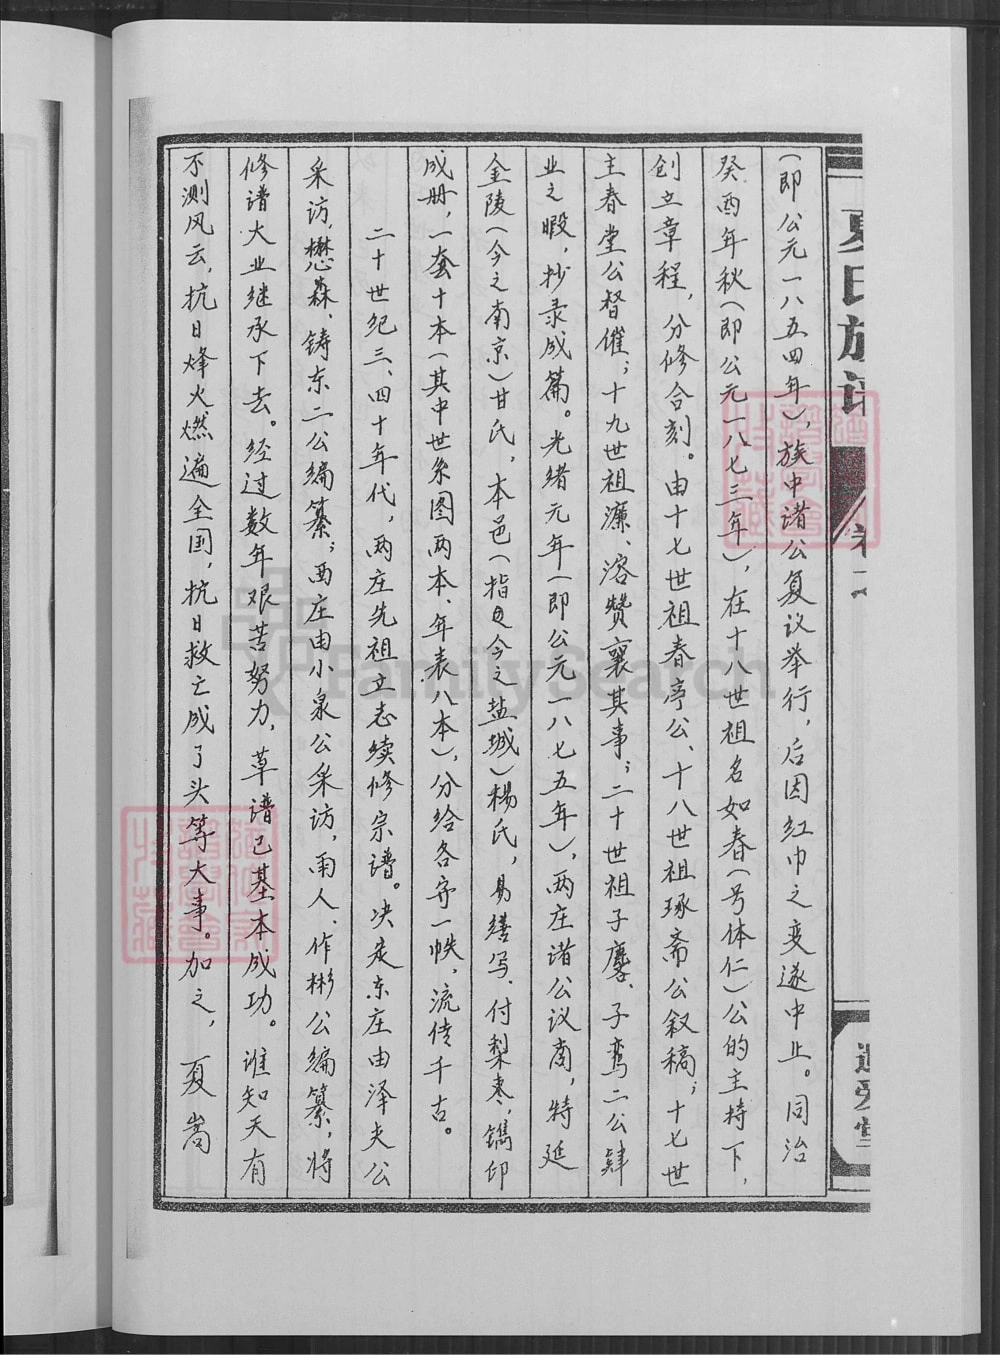 夏氏族谱
卷一
（即公元一八五四年），族中诸公复议举行，后因红巾之变遂中止。同治
癸酉年秋（即公元一八七三年），在十八世祖名如春（号体仁）公的主持下，
创立章程，分修合刻。由十七世祖春亭公、十八世祖琢斋公叙稿；十七世
主春堂公督催；十九世祖濂、溶赞襄其事；二十世祖子麐、子鸾二公肄
业之暇，抄录成篇。光绪元年（即公元一八七五年），两庄诸公议商，特延
金陵（今之南京）甘氏，本邑（指今之盐城）杨氏，易缮写、付梨枣，镌印
成册，一套十本（其中世系图两本、年表八本），分给各房一帙，流传千古。
二十世纪三、四十年代，两庄先祖立志续修宗谱。决定东庄由泽夫公
采访，懋森、铸东二公编纂；西庄由小泉公采访，雨人、作彬公编纂，将
修谱大业继承下去。经过数年艰苦努力，草谱已基本成功。谁知天有
不测风云，抗日烽火燃遍全国，抗日救亡成了头等大事。加之，夏嵩
FamilySearch